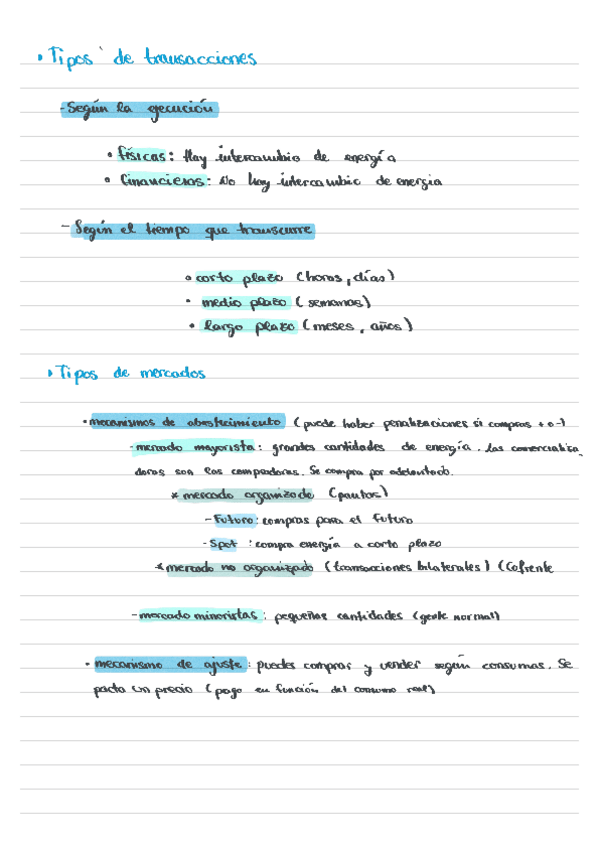 • Tipos de transacciones
- Según la ejecución
• físicas: Hay intercambio de energía
• financieros: No hay intercambio de energia
- Según el tiempo que transcurre
• corto plazo (horas, días)
• medio plazo (semanas)
• largo plazo (meses, años)
• Tipos de mercados
• mecanismos de abastecimiento (puede haber penalizaciones si compras + o -)
- mercado mayorista: grandes cantidades de energía. Las comercializa
doras son las compradoras. Se compra por adelantado.
* mercado organizado (pautas)
- Futuro: compras para el futuro
- Spot: compra energía a corto plazo
* mercado no organizado (transacciones bilaterales) (Cofrente
- mercado minoristas: pequeñas cantidades (gente normal)
• mecanismo de ajuste: puedes comprar y vender según consumas. Se
pacta un precio (pago en función del consumo real)